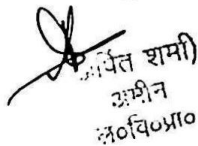 अर्पित शर्मा)
अमीन
ल०वि०प्रा०